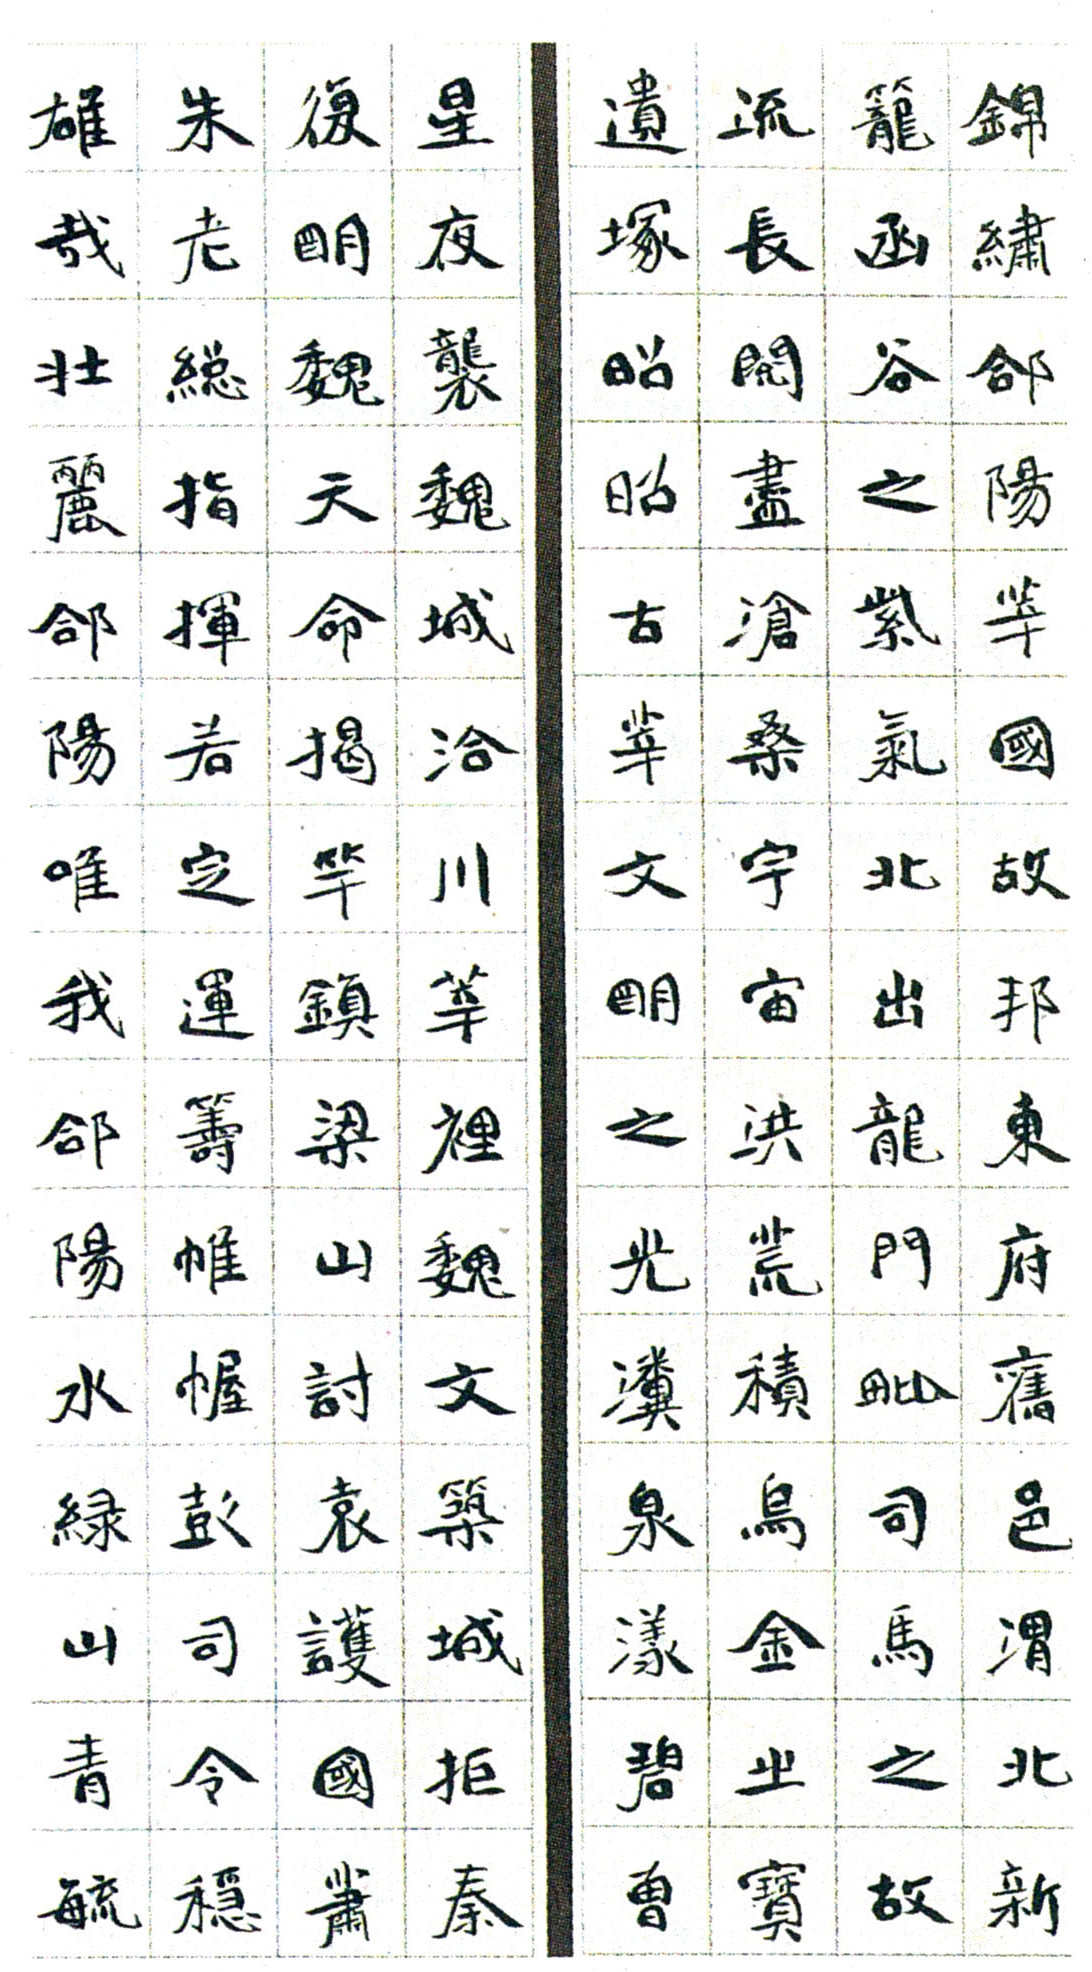 錦繡郃陽莘國故邦東府舊邑渭北新
籠函谷之紫氣北出龍門毗司馬之故
流長開盡滄桑宇宙洪荒積烏金之寶
遺塚昭昭古莘文明之光瀵泉漾碧曹
星夜襲魏城洽川莘裡魏文築城拒秦
復明魏天命揭竿鎮梁山討袁護國肅
朱老総指揮若定運籌帷幄彭司令穩
雄哉壯麗郃陽唯我郃陽水緑山青毓